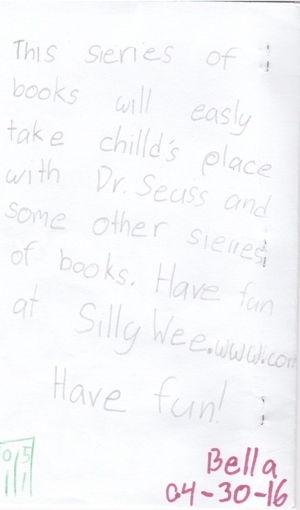 This sieries of
books will easly
take chilld's place
with Dr. Seuss and
some other sieries
of books. Have fun
at Silly Wee.www.com
Have fun!
05
11
Bella
04-30-16